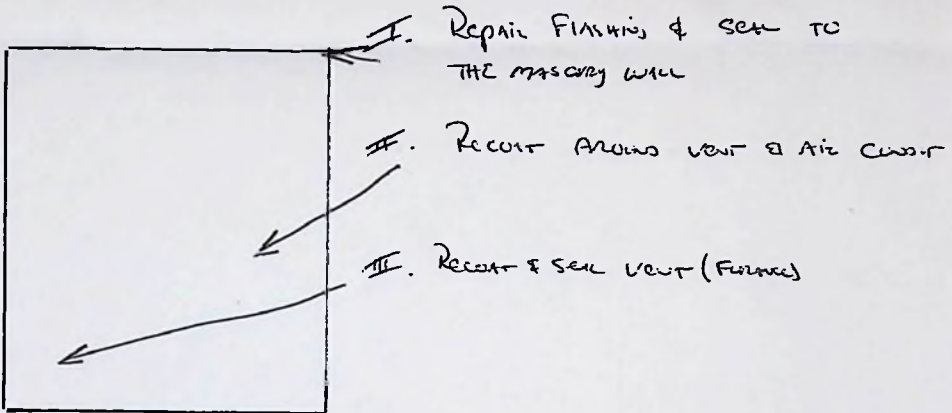 I. Repair Flashing & Seal to
the masonry wall
II. Recoat Around vent & Air
III. Recoat & Seal vent (Furnace)